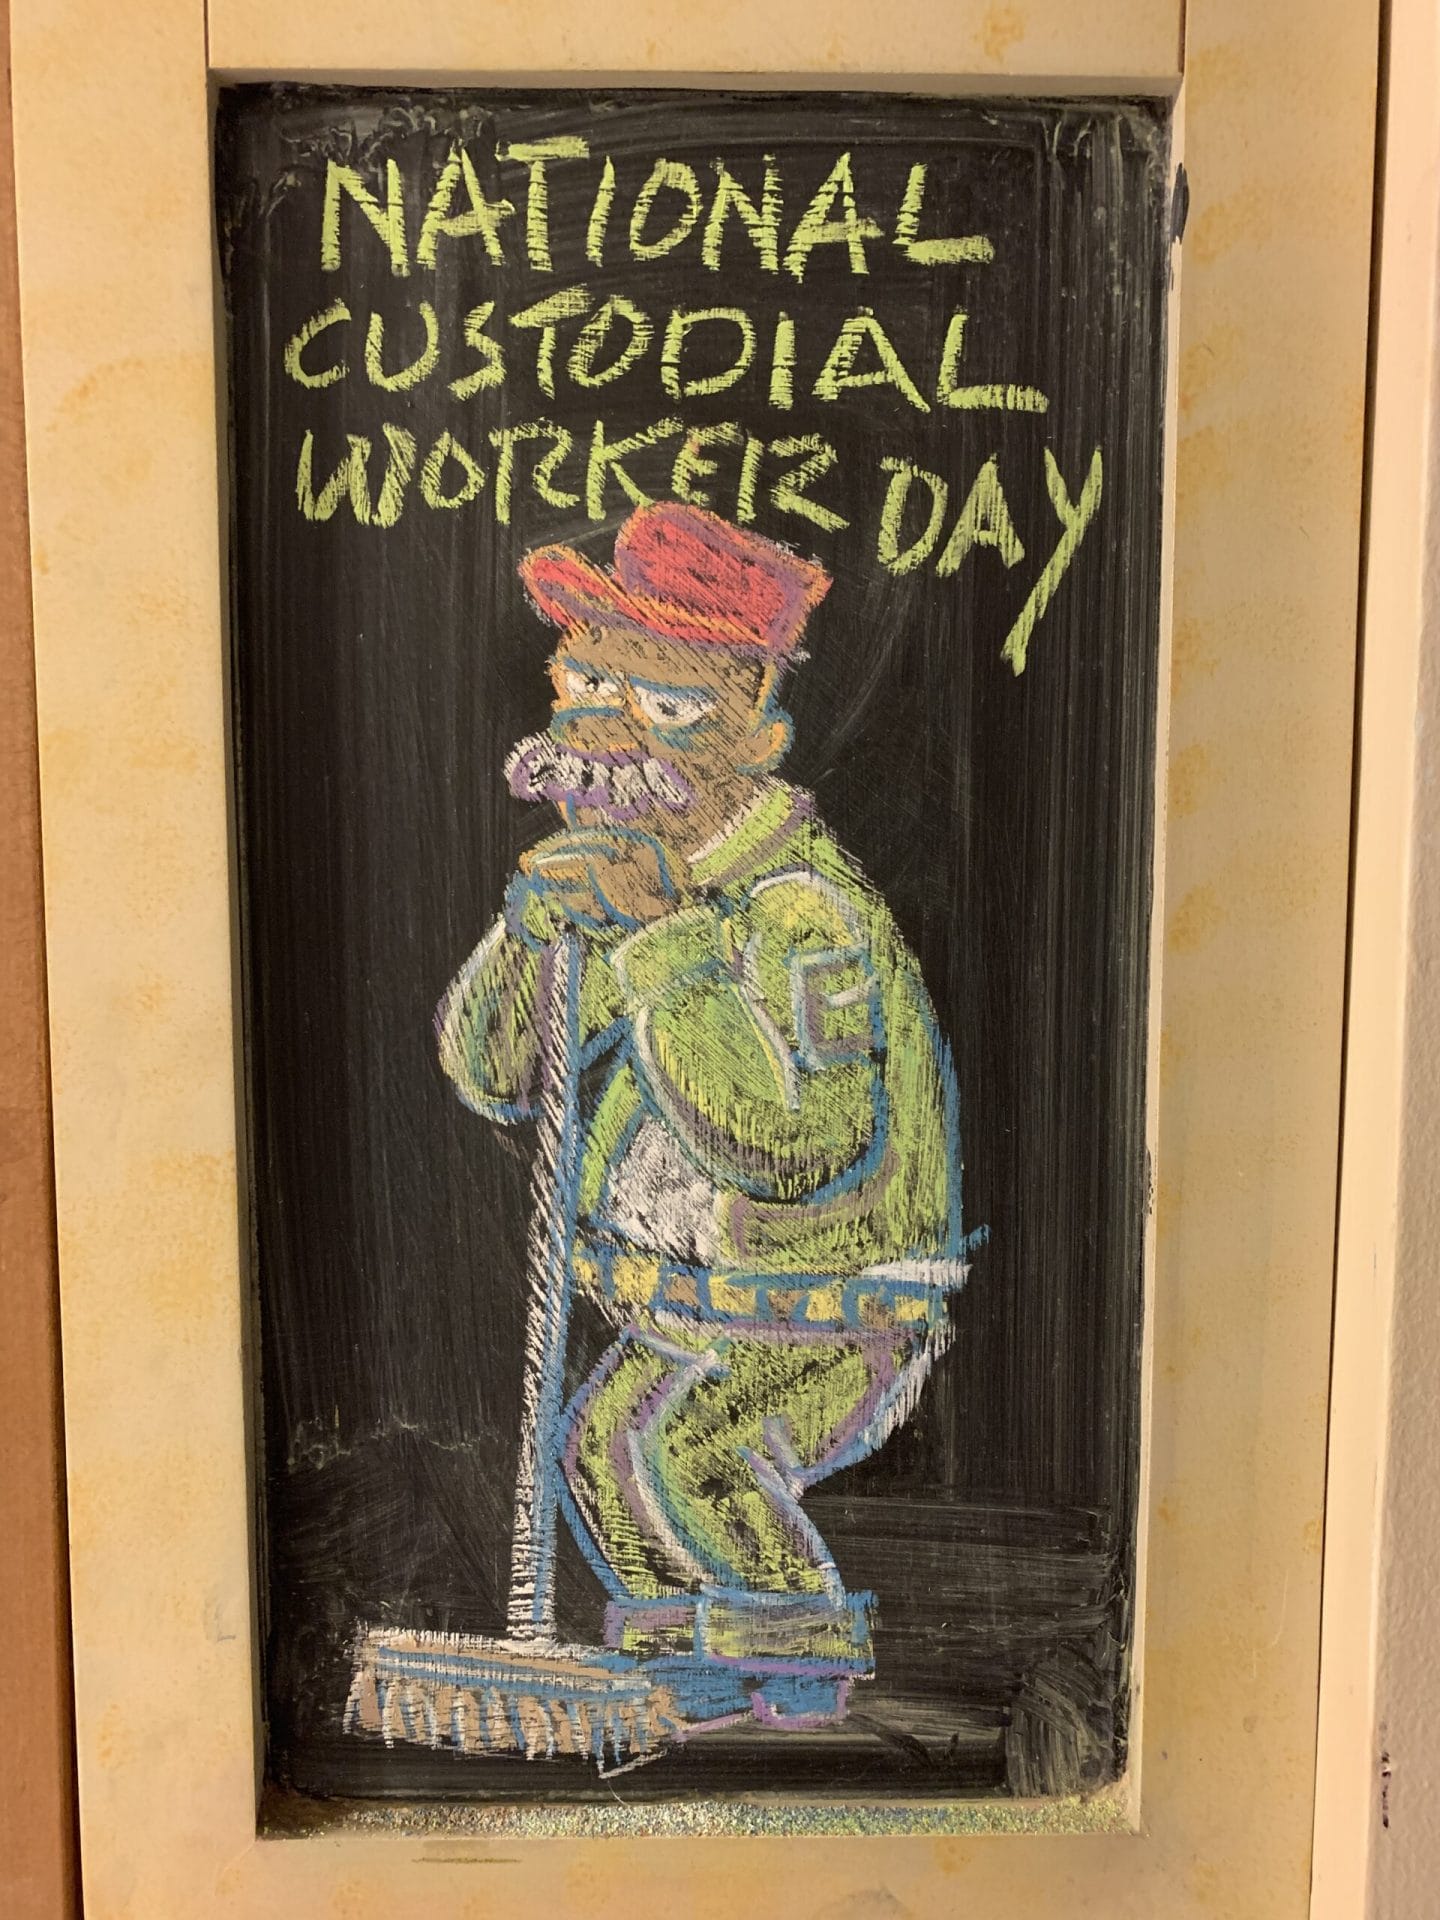 NATIONAL
CUSTODIAL
WORKER DAY